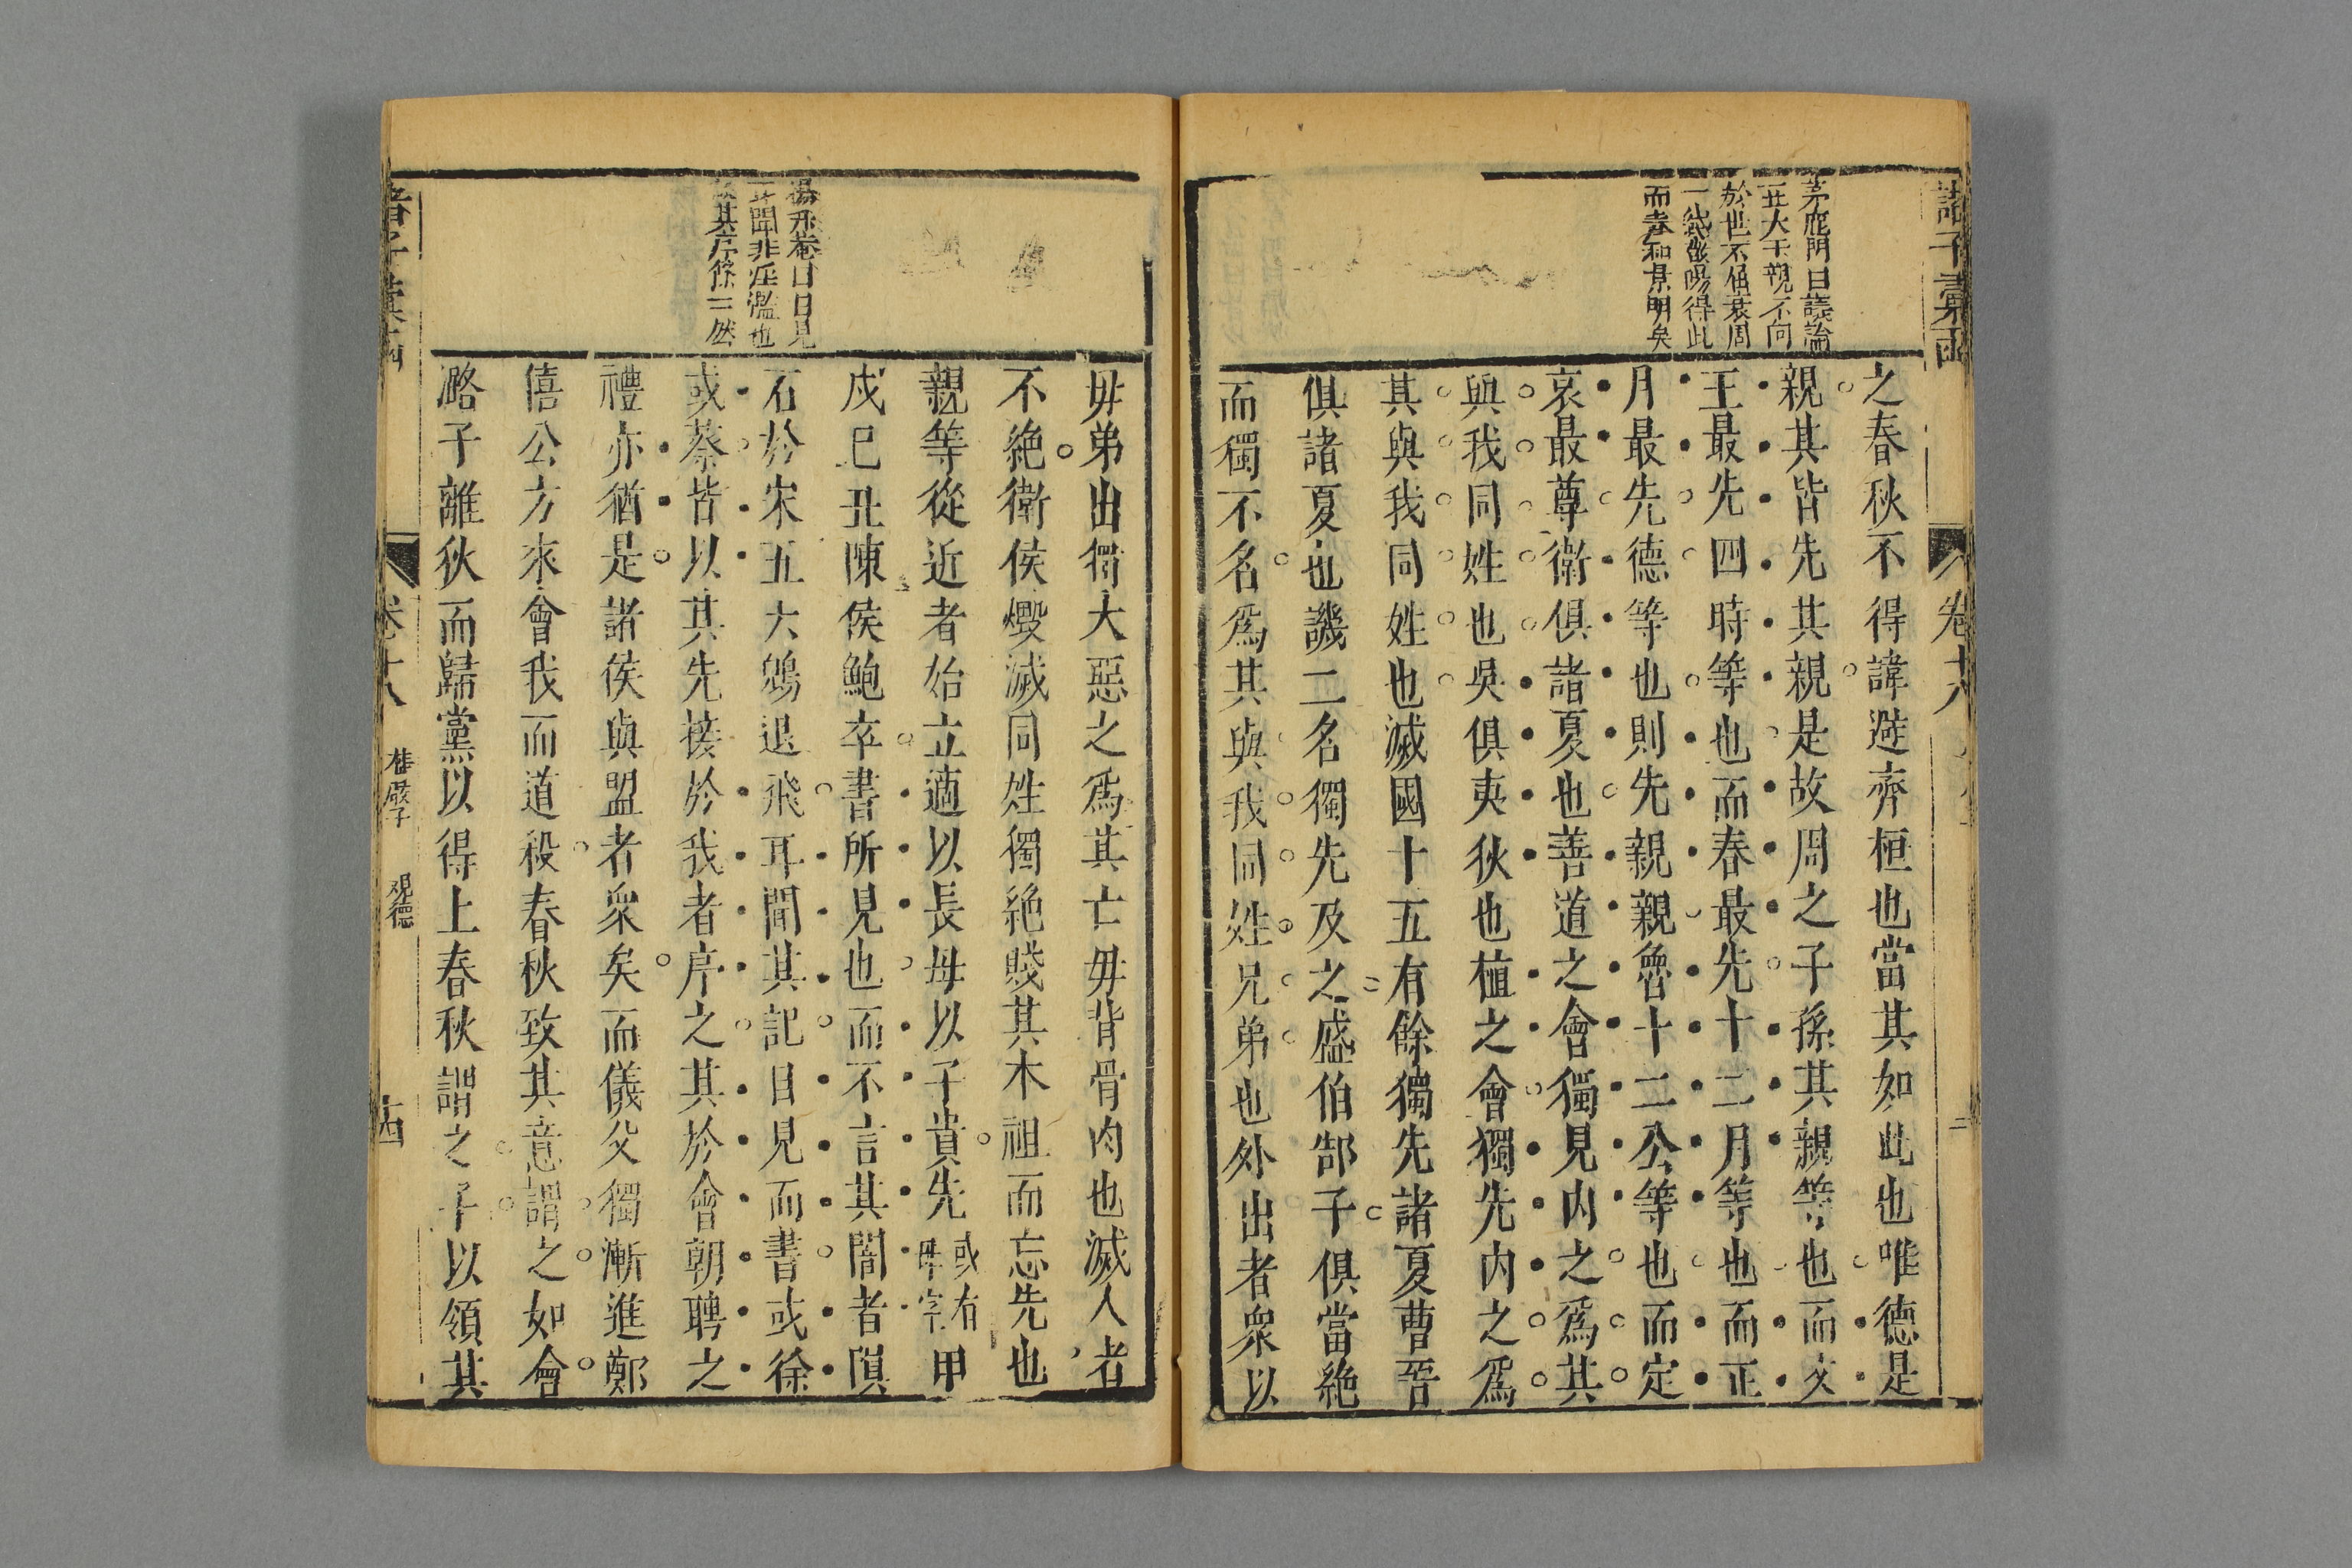 諸子彙函
卷十八
茅鹿門曰議論
正大干親不向
於世不值衰周
得此
而春和景明矣
之春秋不得諱避齊桓也當其如此也唯德是
親其皆先其親是故周之子孫其親等也而文
王最先四時等也而春最先十二月等也而正
月最先德等也則先親親魯十二公等也而定
哀最尊衛俱諸夏也善道之會獨見內之為其
與我同姓也吳俱夷狄也柤之會獨先內之為
其與我同姓也滅國十五有餘獨先諸夏曹晉
俱諸夏也譏二名獨先及之盛伯郜子俱當絕
而獨不名為其與我同姓兄弟也外出者眾以
楊升菴曰目見
耳聞非淫濫也
其序條二然
毋弟出獨大惡之為其亡毋背骨肉也滅人者
不絕衛侯燬滅同姓獨絕賤其木祖而忘先也
親等從近者始立適以長母以子貴先或有毋字甲
戍巳丑陳侯鮑卒書所見也而不言其闇者隕
石於宋五六鶂退飛耳聞其記目見而書或徐
或蔡皆以其先接於我者序之其於會朝聘之
禮亦猶是諸侯與盟者眾矣而儀父獨漸進鄭
僖公方來會我而道殺春秋致其意謂之如會
潞子離狄而歸黨以得上春秋謂之子以領其
諸子彙函
卷十八
桂巖子
觀德
十四